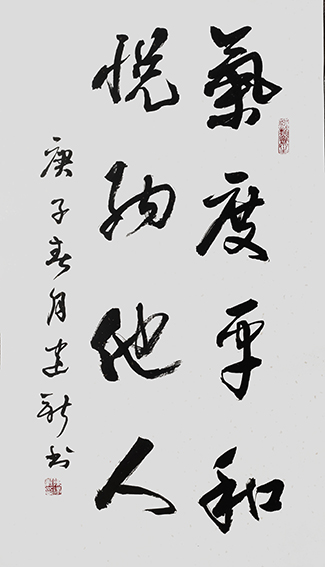 氣度平和
悦納他人
庚子春月建新书